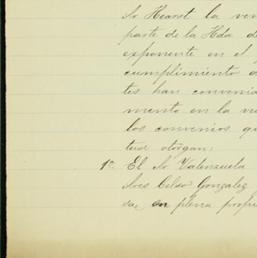 Sr Hearst la ven
parte de la Hda de
exponente en el
cumplimiento d
tes han convenia
mento en la m
los convenios qu
tura otorgan:
1a El Sr Valenzuela
Sres Celso Gonzalez
sa, en plena propi